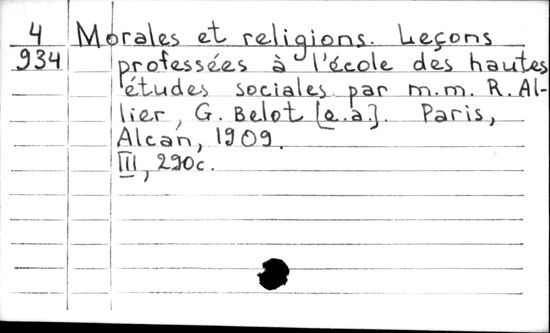 4 Morales et religions. Leçons
934 professées à l'école des hautes
études sociales par m.m. R. Al-
lier, G. Belot [e.a.]. Paris,
Alcan, 1909.
III, 290c.